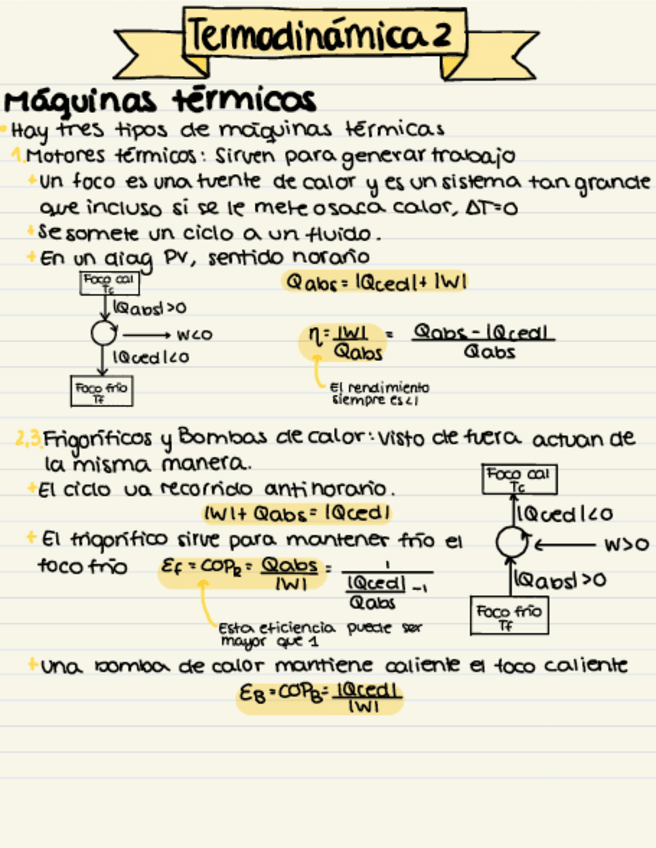 Termodinámica 2
Máquinas térmicos
Hay tres tipos de máquinas térmicas
1. Motores térmicos: Sirven para generar trabajo
+ Un foco es una fuente de calor y es un sistema tan grande
que incluso si se le mete o saca calor, ΔT=0
+ Se somete un ciclo a un fluido.
+ En un diag PV, sentido horario
Foco cal
Tc
|Qabs|>0
W<0
|Qced|<0
Foco frío
Tf
Qabs = |Qced| + |W|
η = |W| / Qabs = Qabs - |Qced| / Qabs
El rendimiento
siempre es <1
2,3. Frigoríficos y Bombas de calor: Visto de fuera actuan de
la misma manera.
+ El ciclo va recorrido antihorario.
|W| + Qabs = |Qced|
+ El frigorífico sirve para mantener frío el
foco frío
εf = COPR = Qabs / |W| = 1 / |Qced| / Qabs - 1
Esta eficiencia puede ser
mayor que 1
Foco cal
Tc
|Qced|<0
W>0
|Qabs|>0
Foco frío
Tf
+ Una bomba de calor mantiene caliente el foco caliente
εB = COPB = |Qced| / |W|